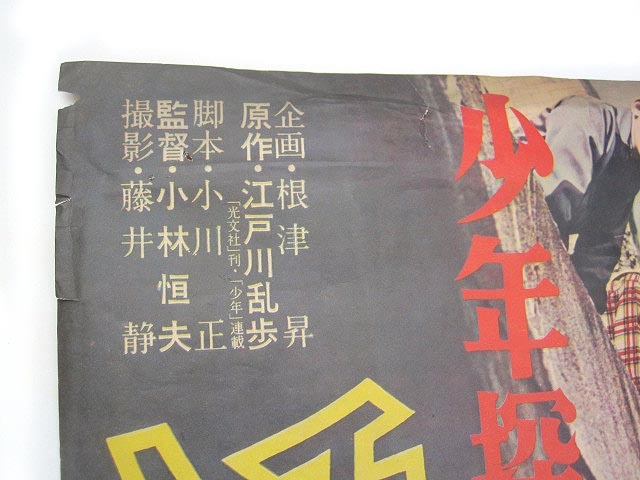 少年探
企画・根津昇
原作・江戸川乱歩
「光文社」刊・「少年」連載
脚本・小川正
監督・小林恒夫
撮影・藤井静